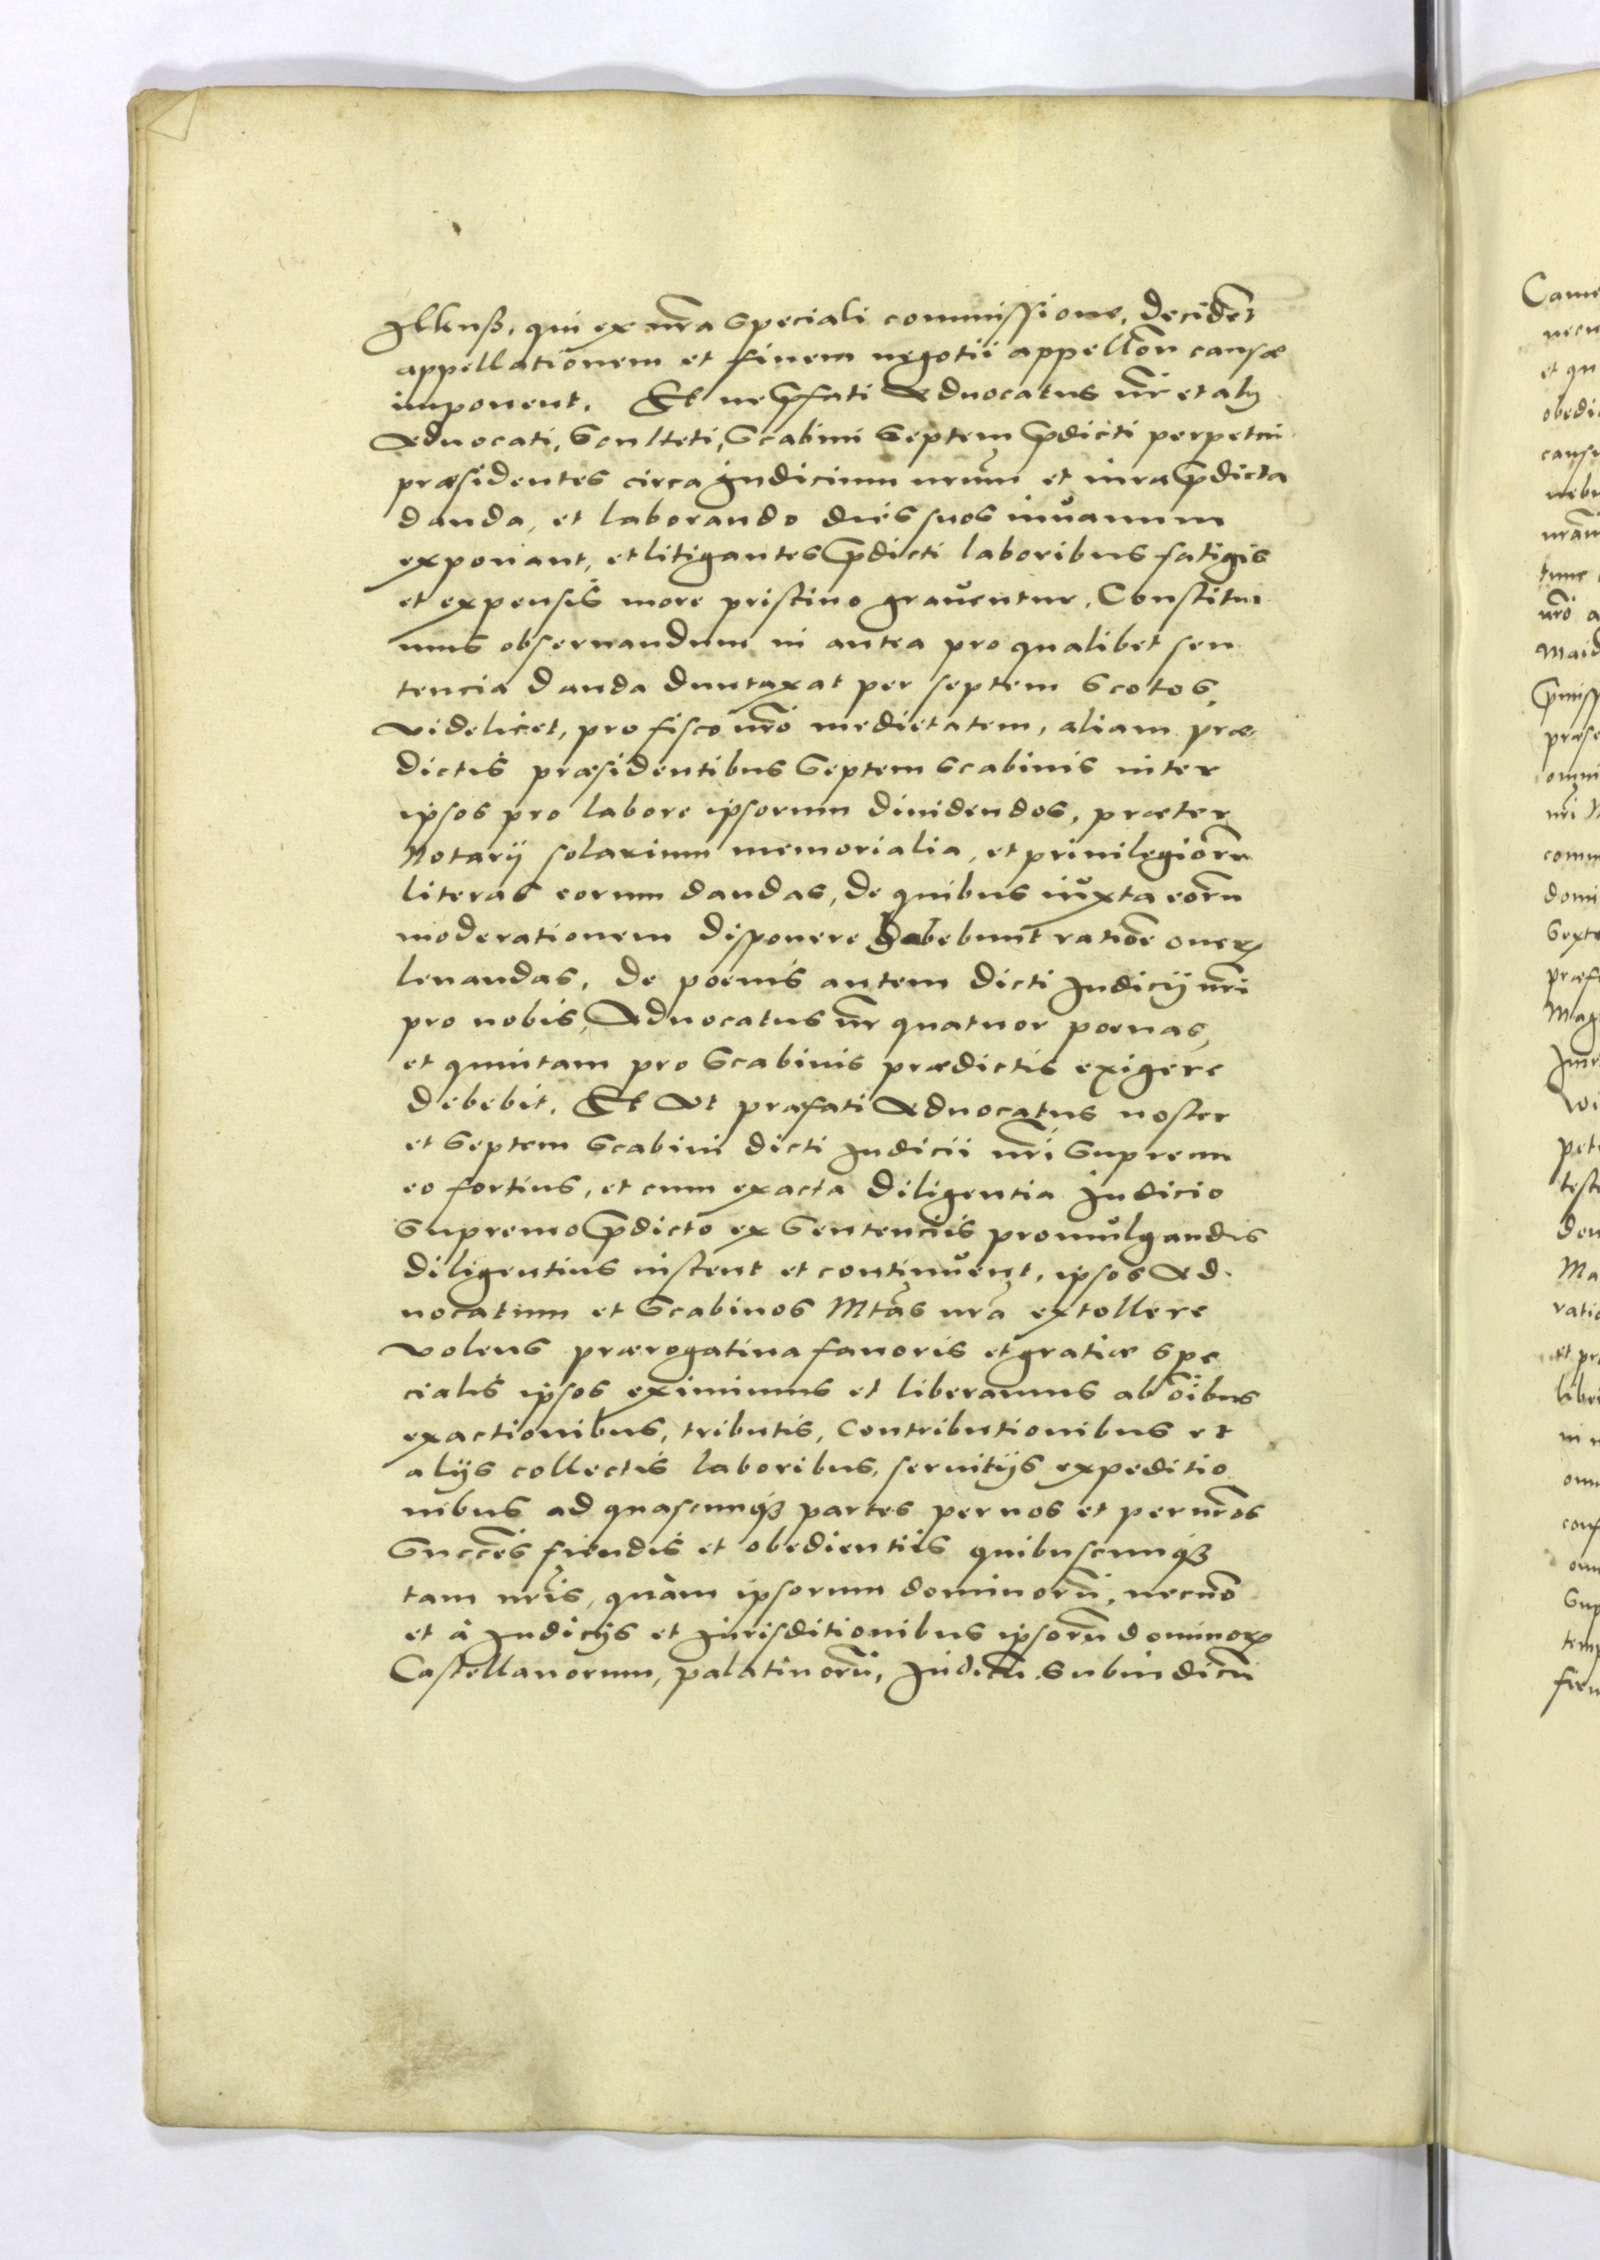 Ilkusz, qui ex nr̃a speciali commissione, decidẽt
appellationem et finem negotii appellõn causæ
imponent. Et ne p̃fati Aduocatus nr̃ et alij
Aduocati, Sculteti, Scabini Septem p̃dicti perpetui
præsidentes circa Iudicium nrũm et iura p̃dicta
danda, et laborando dies suos inuanum
exponant, et litigantes p̃dicti laboribus fatigis
et expensis more pristino grauentur, Constitui
mus obseruandum in antea pro qualibet sen
tencia danda duntaxat per septem scotos,
videlicet, pro fisco nr̃o medietatem, aliam præ
dictis præsidentibus Septem Scabinis inter
ipsos pro labore ipsorum diuidendos, præter
Notarij solarium memorialia, et priuilegiorũ
literas eorum dandas, de quibus iuxta eorũ
moderationem disponere habebunt ratiõe oner
leuandas, de poenis autem dicti Iudicij nr̃i
pro nobis, Aduocatus nr̃ quatuor poenas,
et quintam pro Scabinis prædictis exigere
debebit. Et Vt præfati Aduocatus noster
et Septem Scabini dicti Iudicii nr̃i Supremi
eo fortius, et cum exacta diligentia Iudicio
Supremo p̃dicto ex Sentenciis promulgandis
diligentius instent et continuent, ipsos Ad
uocatum et Scabinos Mtãs nrã extollere
volens prærogatiua fauoris et gratiæ spe
cialis ipsos eximimus et liberamus ab oĩbus
exactionibus, tributis, Contributionibus et
alijs collectis laboribus, seruitijs expeditio
nibus ad quascunq₃ partes per nos et per nr̃os
Succẽs fiendis et obedientiis quibuscunq₃
tam nrĩs, quàm ipsorum dominorũ, necnõ
et à Iudicijs et Iurisditionibus ipsorũ dominor
Castellanorum, palatinorũ, Iudicũ Subiudicũ